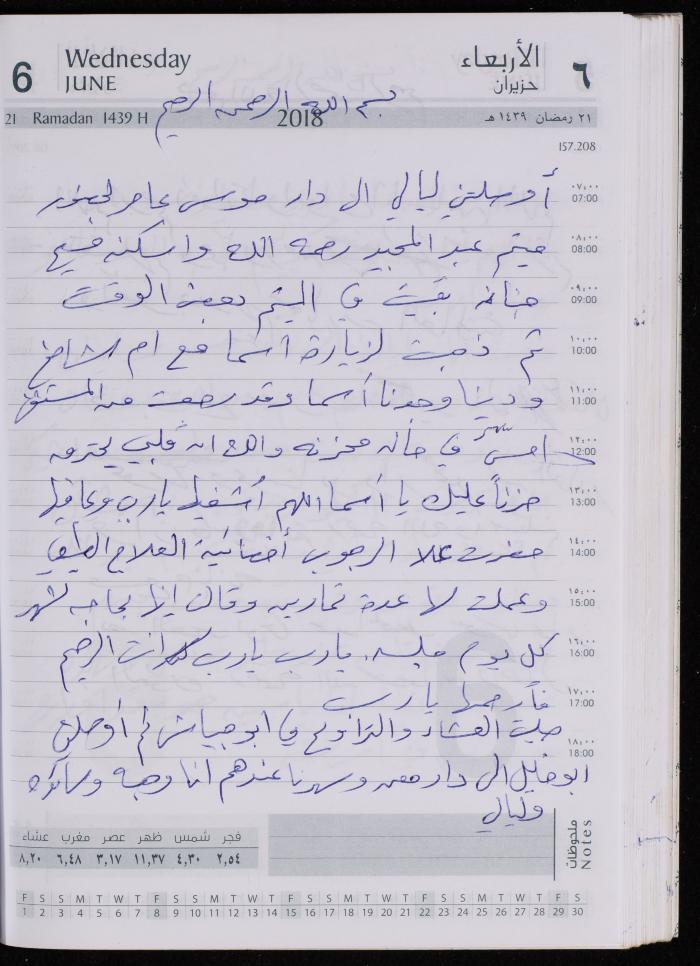 6 Wednesday JUNE الأربعاء حزيران ٦
بسم الله الرحمن الرحيم
21 Ramadan 1439 H 2018 ٢١ رمضان ١٤٣٩ هـ
157.208
٠٧:٠٠ 07:00 أوسلتني ليالي ال دار موسى عامر لحضور
٠٨:٠٠ 08:00 ميتم عبد المجيد رحمه الله واسكنه فسيح
٠٩:٠٠ 09:00 جنانه بقيت في الميتم بعض الوقت
١٠:٠٠ 10:00 ثم ذهبت لزيارة أسما مع ام
١١:٠٠ 11:00 ودينا وجدنا أسما وقد رجعت من المستشفى
١٢:٠٠ 12:00 امس في حاله محزنه والله انه قلبي يحترق
١٣:٠٠ 13:00 حزناً عليك يا أسما اللهم أشفيها يارب وعافيها
١٤:٠٠ 14:00 حضرت علا الرجوب أخصائية العلاج الطبيعي
١٥:٠٠ 15:00 وعملت لها عدة تمارين وقالت إنها بحاجه لشهر
١٦:٠٠ 16:00 كل يوم جلسه. يارب يارب انت الرحيم
١٧:٠٠ 17:00 فأرحمها يارب
صليت العشاء والتراويح في ابو عياش ثم أوصلني
١٨:٠٠ 18:00 ابو خليل الى دار معن وسهرنا عندهم انا وهبه
وليالي
ملحوظات Notes
فجر شمس ظهر عصر مغرب عشاء
٢,٥٤ ٤,٣٠ ١١,٣٧ ٣,١٧ ٦,٤٨ ٨,٢٠
F S S M T W T F S S M T W T F S S M T W T F S S M T W T F S
1 2 3 4 5 6 7 8 9 10 11 12 13 14 15 16 17 18 19 20 21 22 23 24 25 26 27 28 29 30